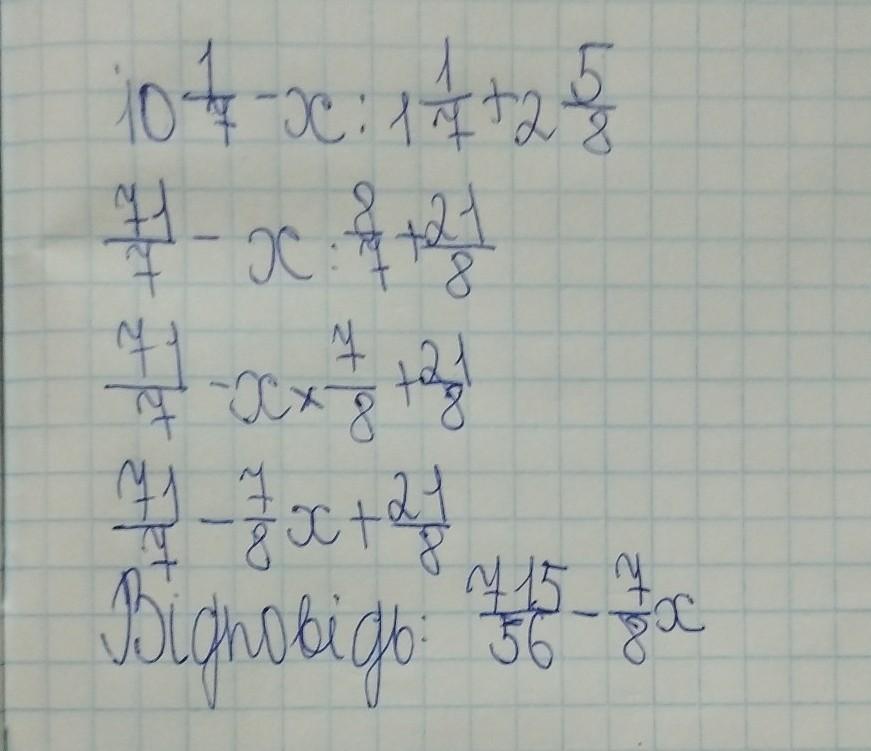 10 1/7 - x : 1 1/7 + 2 5/8
71/7 - x : 8/7 + 21/8
71/7 - x × 7/8 + 21/8
71/7 - 7/8 x + 21/8
Відповідь: 715/56 - 7/8 x